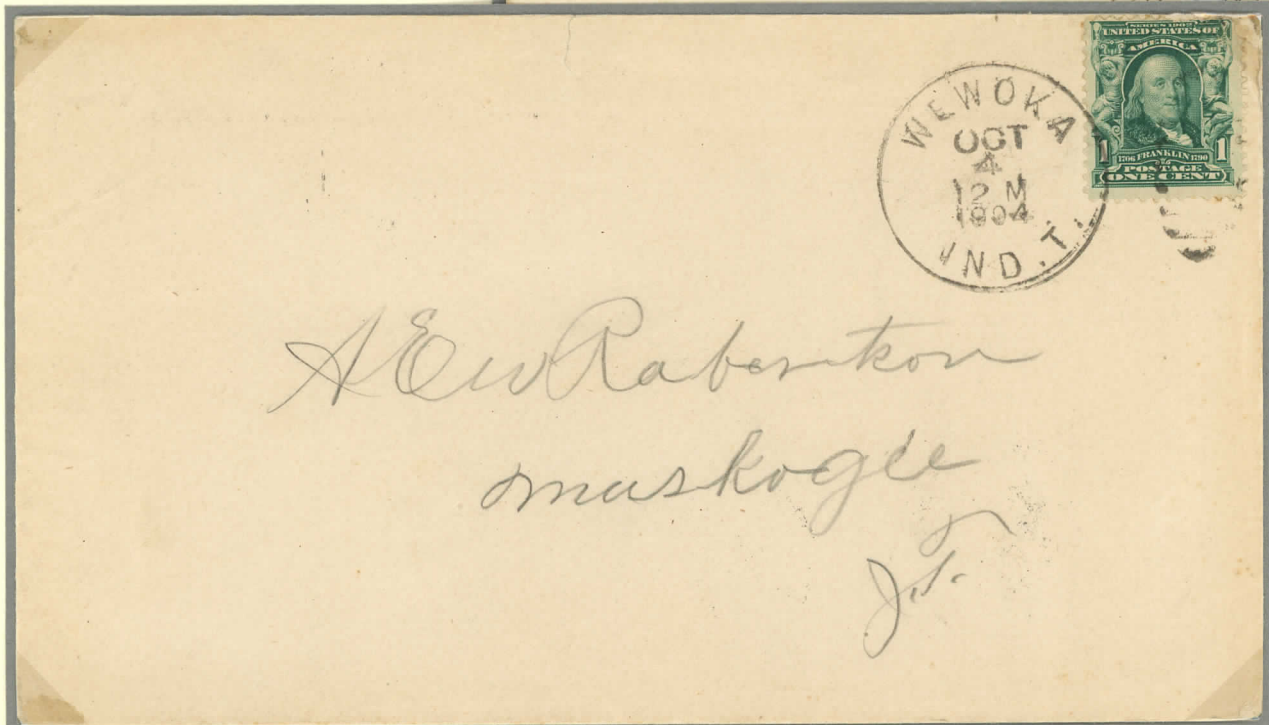 SERIES 1902
UNITED STATES OF
AMERICA
1 1706 FRANKLIN 1790 1
POSTAGE
ONE CENT
WEWOKA
OCT
4
12 M
1904
IND. T.
A E W Robertson
Muskogee
I.T.